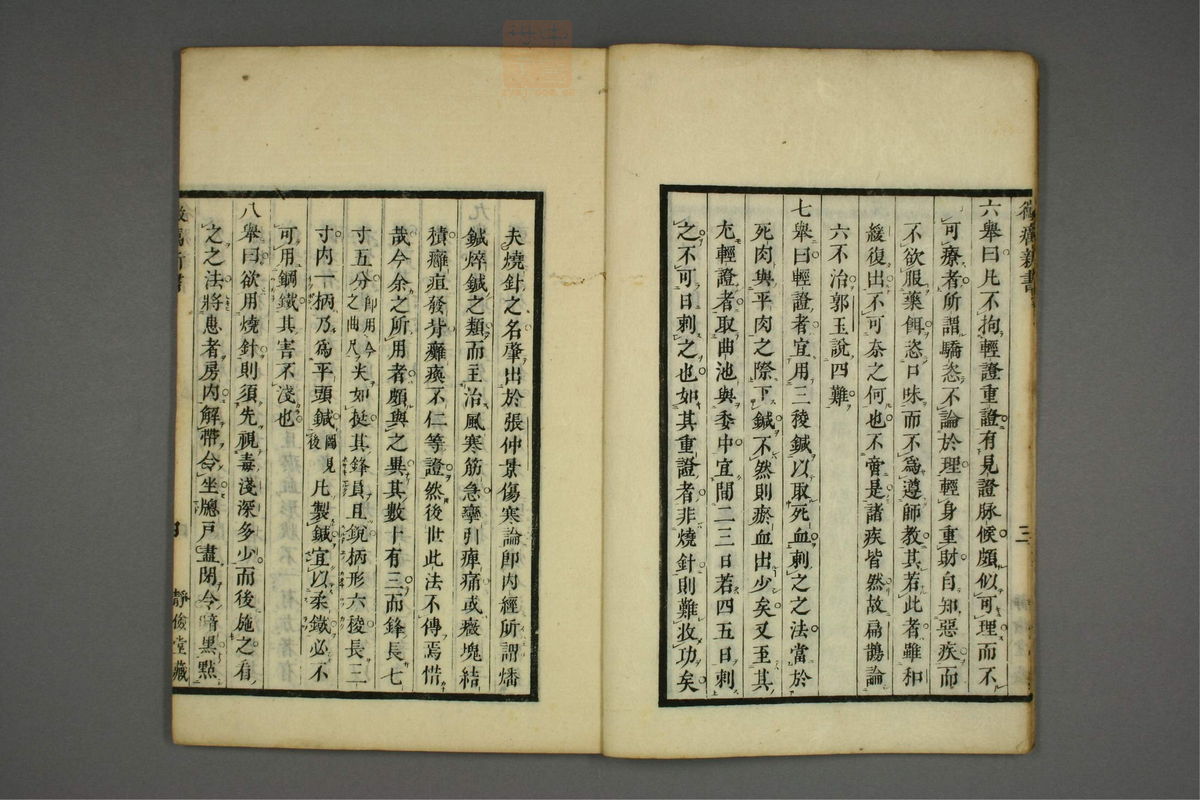 六舉曰凡不拘輕證重證有見證脉候頗似可理而不
可療者所謂驕恣不論於理輕身重財自知惡疾而
不欲服藥餌恣口味而不為遵師教其若此者雖和
緩復出不可奈之何也不啻是諸疾皆然故扁鵲論
六不治郭玉說四難
七舉曰輕證者宜用三稜鍼以取死血刺之之法當於
死肉與平肉之際下鍼不然則瘀血出少矣又至其
尤輕證者取曲池與委中宜間二三日若四五日刺
之不可日刺之也如其重證者非燒針則難收功矣
三
夫燒針之名肇出於張仲景傷寒論即内經所謂燔
鍼焠鍼之類而主治風寒筋急攣引痺痛或癥塊結
積癰疽發背癱瘓不仁等證然後世此法不傳焉惜
哉今余之所用者頗與之異其數十有三而鋒長七
寸五分即用今之曲尺夫如挺其鋒員且銳柄形六稜長三
寸内一柄乃為平頭鍼圖見後凡製鍼宜以柔鐵必不
可用鋼鐵其害不淺也
八舉曰欲用燒針則須先視毒淺深多少而後施之有
之之法將患者房内解帶令坐牕戸盡閉令暗黒點
靜儉堂藏